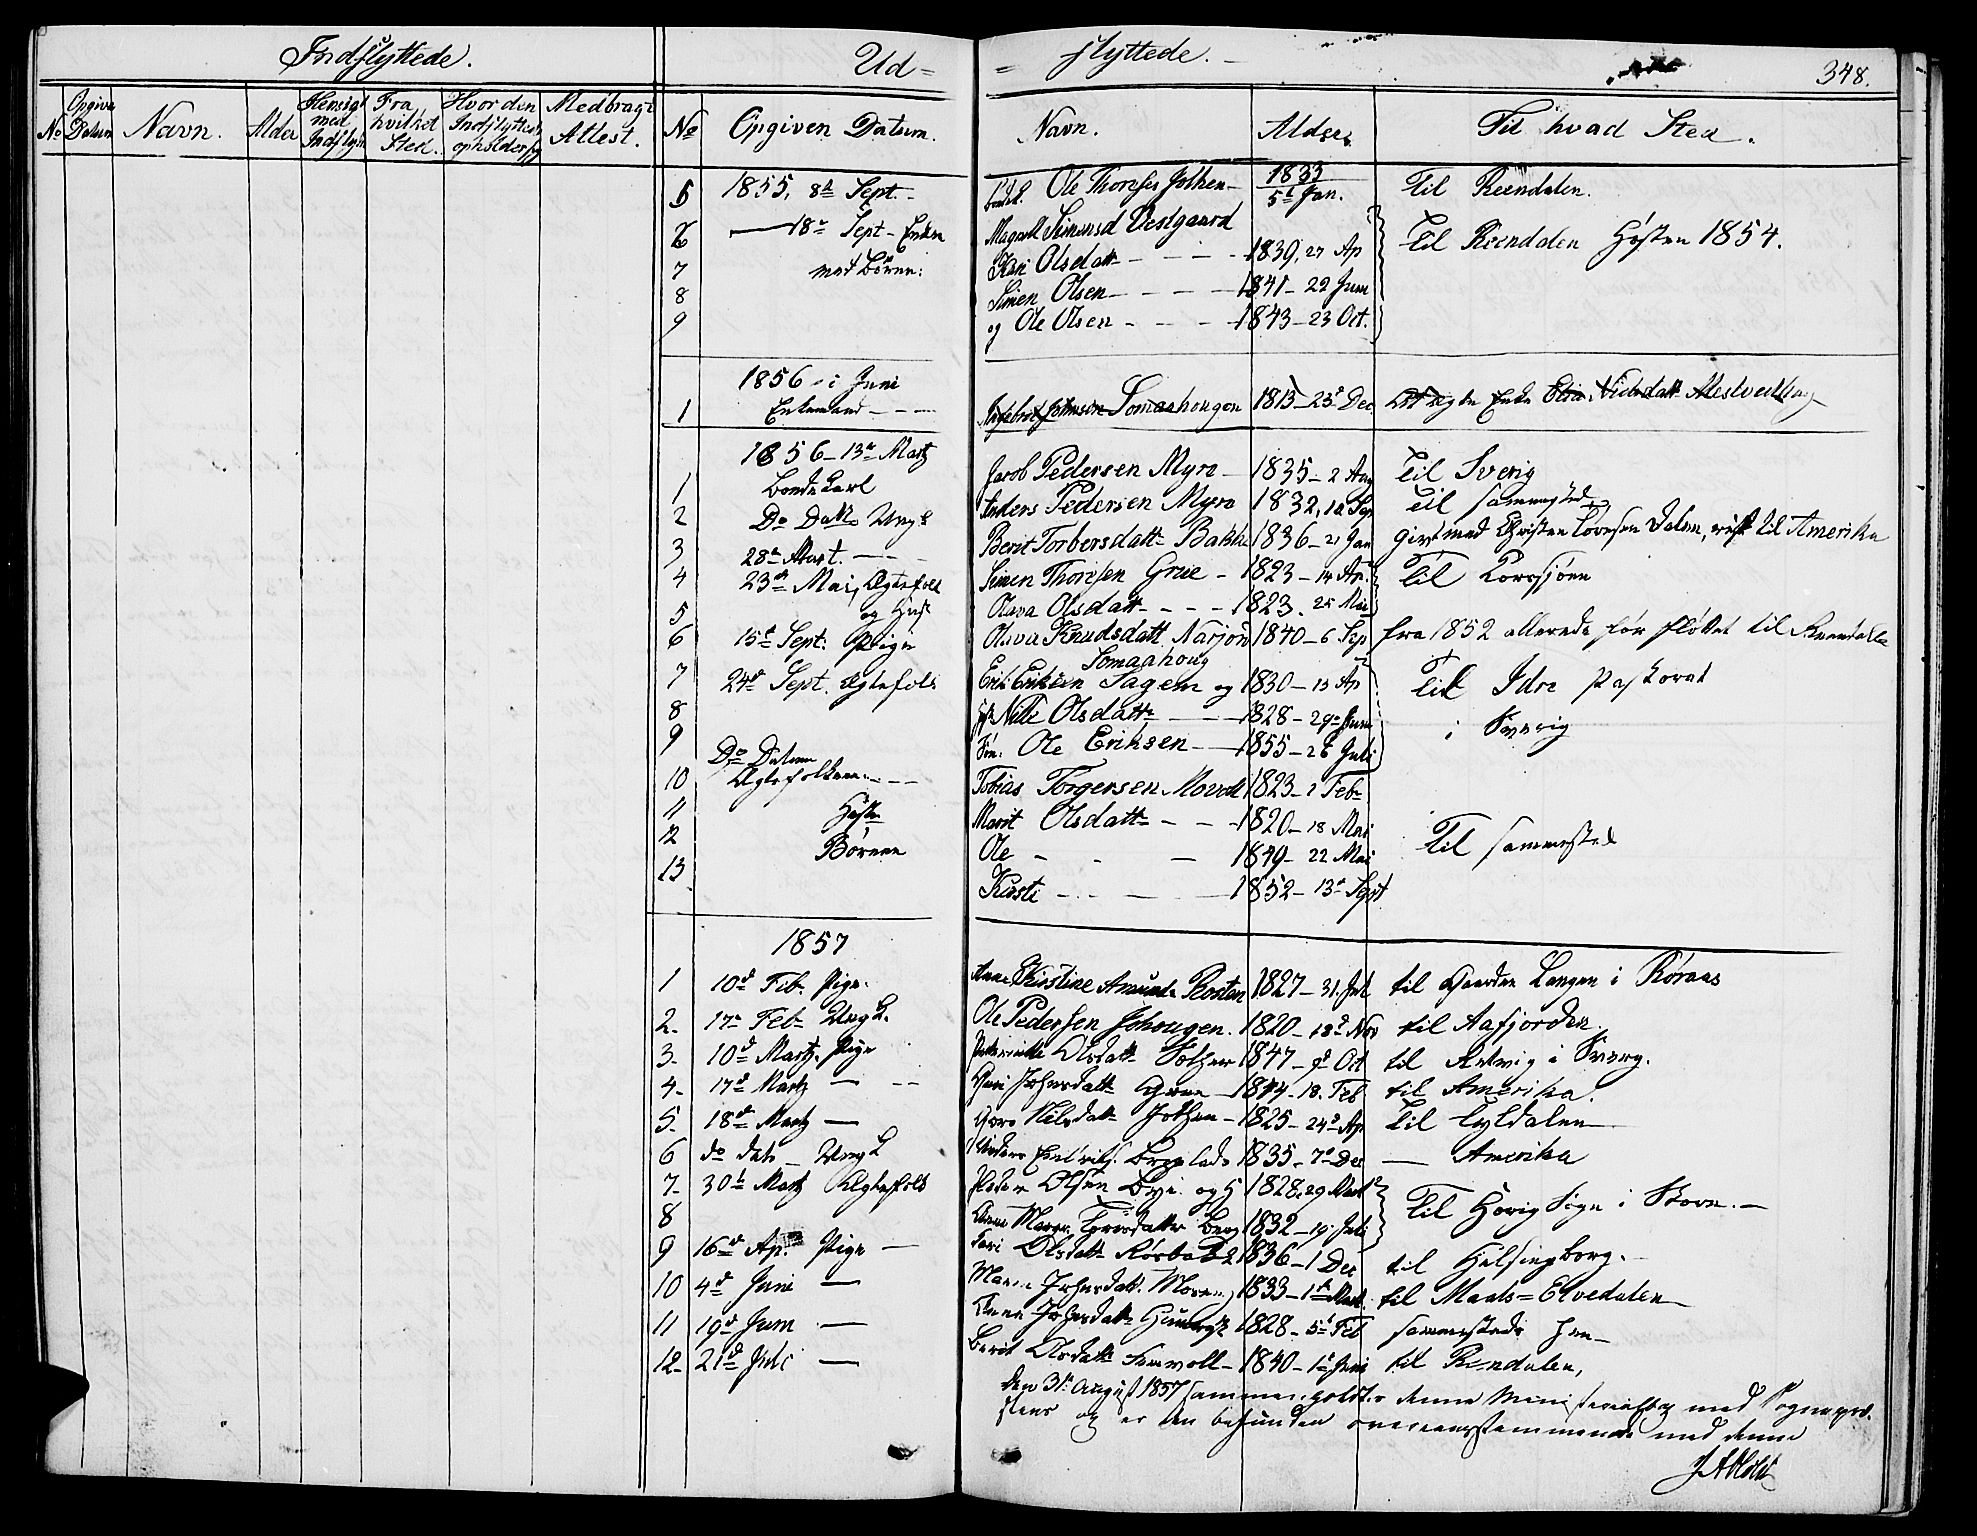 Indflyttede.
Ud=
=flyttede.
348.
No
Opgiven Datum
Navn.
Alder
Hensigt med Indflytn
Fra hvilket Sted.
Hvor den Indflyttede opholder sig
Medbragt Attest.
No
Opgiven Datum.
Navn.
Alder.
Til hvad Sted.
5 1855, 8de Sept. Ole Thomsen Jothen 1833 5te Jan. Til Reendalen.
6 18de Sept Enken Magrete Simensd Vestgaard Til Reendalen Høsten 1854.
7 med Børn: Kari Olsdatt 1839, 27 Ap
8 Simen Olsen 1841 - 22 Juni
9 og Ole Olsen 1843 - 23 Oct.
1856 - i Juni
1 Enkemand Ingebret Johnsen Somaahougen 1813 - 23 Dec Enke
1856 - 13de Martz
1 Bondekarl Jacob Pedersen Myro 1835 - 2 Aug Til Sverig
2 Do Dato Ungk Anders Pedersen Myro 1832, 12 Sep Til sammested
3 28de Mart. Berit Torbersdatt Bakke 1836 - 21 Jan givt med Christen Dalen, reist til Amerika
4 23de Mai, Ægtefolk Simen Thomsen Grue 1823 - 14 Ap. Til Korssjøen
5 og Hust Olava Olsdatt 1823. 25 Mai
6 15de Sept. Pige Olava Knudsdatt Narjord 1840 - 6 Sep fra 1852 allerede før fløttet til Reendalen
7 24de Sept. Ægtefolk Erik Eriksen Somaahoug Sagem og 1830 - 13 Ap Til Idre Pastorat
8 Nille Olsdatt 1828 - 29 Juni i Sverig
9 Søn. Ole Eriksen 1855 - 26 Juli
10 Do Datum Ægtefolkene Tobias Torgersen Movold 1823 - 2 Feb
11 Marit Olsdatt 1820 - 18 Mai Til sammested
12 Børnene Ole 1849 - 22 Mai
13 Kirsti 1852 - 13de Sept
1857
1 10de Feb. Pige. Anne Kirstine Amunds Rosten 1827 - 31. Jul til Gaarden Langen i Røraas
2. 17de Feb Ungk. Ole Pedersen Johougen. 1820 - 18de Nov til Aafjorden.
3. 10de Martz. Pige Olsdatt 1847 - 9de Oct til i Sverig.
4. 17de Martz Guri Johnsdatt 1844. 18. Feb til Amerika.
5. 18de Martz Goro Nilsdatt Jothen 1825 - 24de Ap Til Tyldalen
6 do dato Ungk Anders 1835 - 7de Dec Amerika
7. 30te Martz Ægtefolk Peder Olsen Bye og H 1828. 29 Mart Til i
8 Anne 1832 - 19. Juli
9 16de Ap. Pige Kari Olsdatt 1836 - 1 Dec til Helsingborg.
10 4de Juni Maren Johnsdatt. Moren 1833 - 1de Mart. til Maals=Elvedalen
11 19de Juni Anne Johnsdatt 1828 - 5te Feb sammesteds hen
12. 21de Juli Berit Olsdatt Femvoll 1840 - 1de Juni til Rendalen,
den 31te August 1857 sammenholdtes denne Ministerialbog med Sognepræ-
stens og er den befunden overeensstemmende med denne